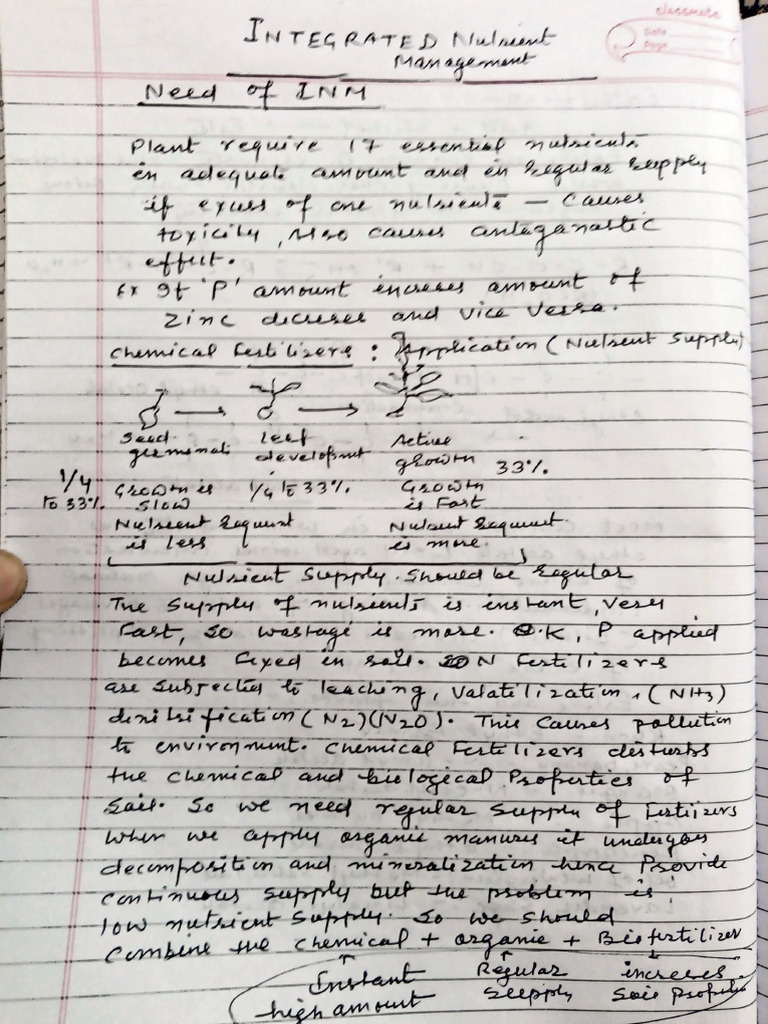 classmate
Date
Page
INTEGRATED Nutrient
Management
Need of INM
Plant require 17 essential nutrients
in adequate amount and in regular supply
if excess of one nutrients - causes
toxicity, Also causes antaganastic
effect.
Ex If 'P' amount increses amount of
Zinc decreses and vice versa.
Chemical Fertilizers : Application (Nutrient Supply)
Seed Leef Active
germinati development growth 33%
1/4 to 33% Growth is slow 1/4 to 33%. Growth is Fast
Nutrient Requirent Nutrient Requirent
is less is more.
Nutrient Supply. Should be regular
The Supply of nutrients is instant, very
Fast, so wastage is more. K, P applied
becomes fixed in soil. N Fertilizers
are subjected to leaching, Valatilization, (NH3)
denitrification (N2)(N2O). This Causes pollution
to environment. Chemical Fertilizers disturbs
the chemical and biological Properties of
Soil. So we need regular supply of Fertizers
When we apply organic manures it undergoes
decomposition and mineralization hence Provide
continuous supply but the problem is
low nutrient supply. So we should
Combine the chemical + organic + Biofertilizer
Instant Regular increses
high amount Supply Soil Properties